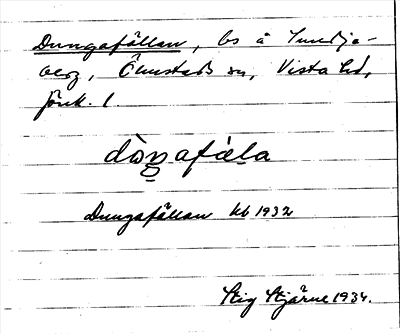 Dungafällan, bs å Smedja-
berg, Ölmstads sn, Vista hd,
Jönk. l.
dòŋafäla
Dungafällan kb 1932
Stig Stjärne 1934.